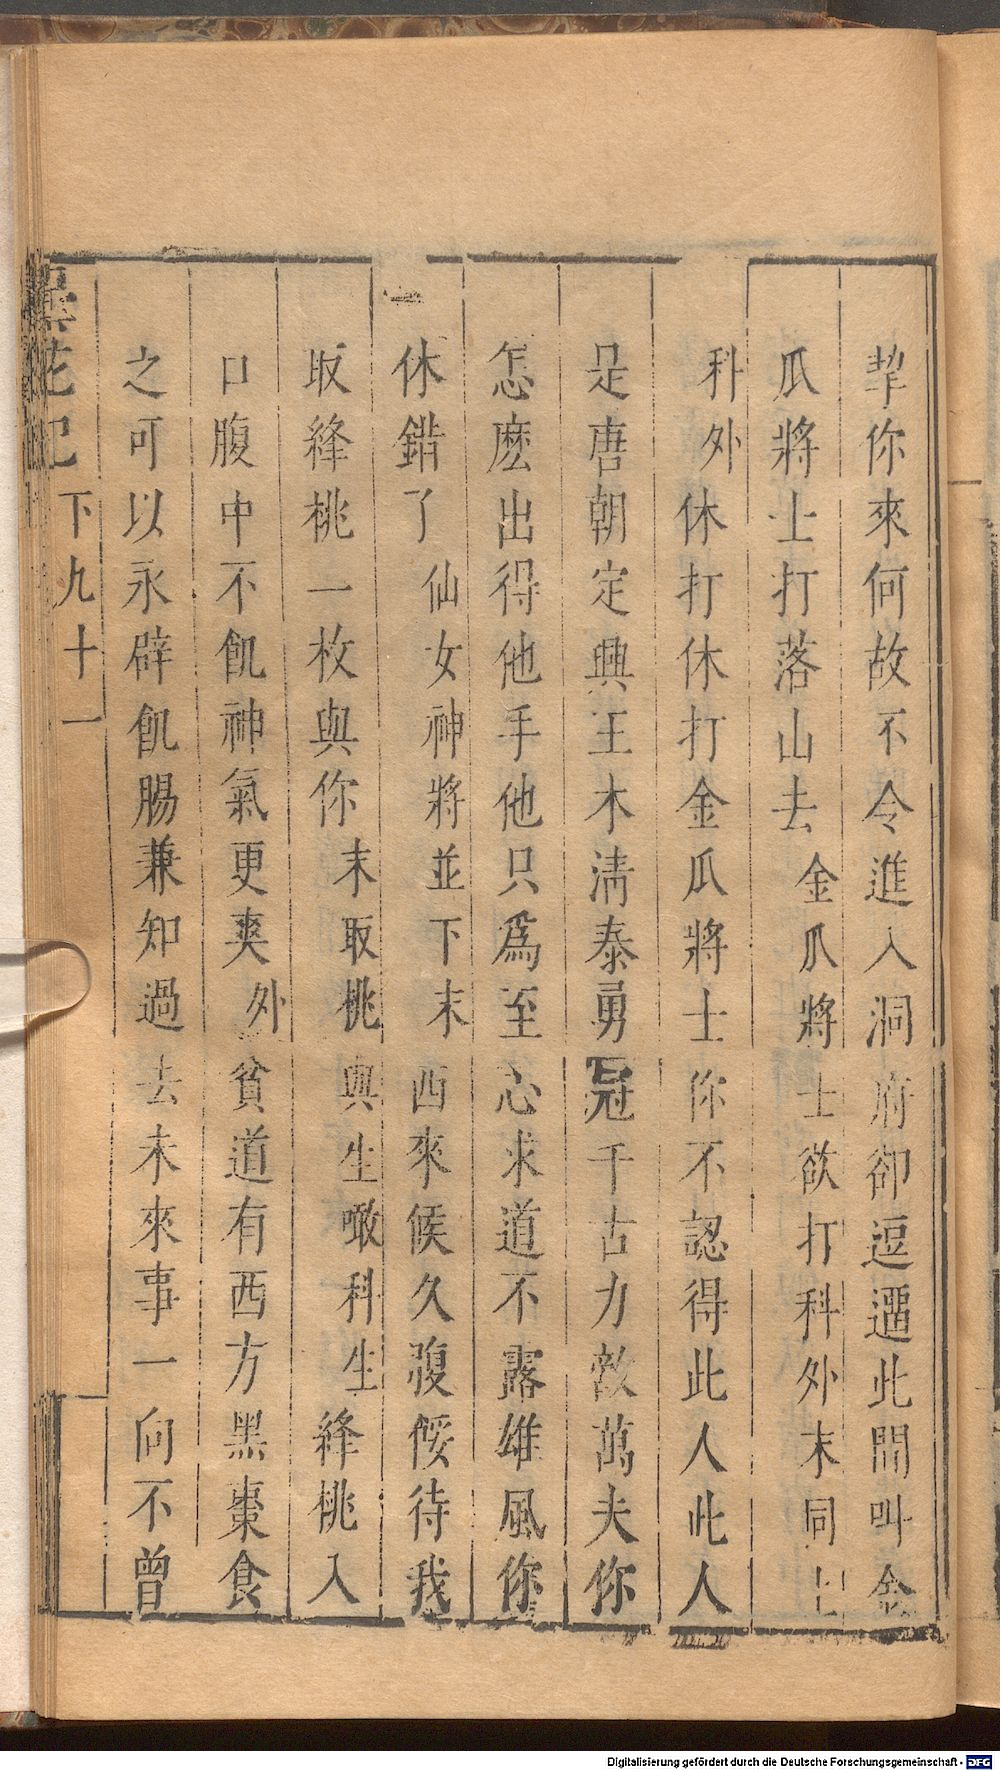 挈你來何故不令進入洞府卻逗遛此間叫金
瓜將士打落山去金瓜將士欲打科外末同上
科外休打休打金瓜將士你不認得此人此人
是唐朝定興王木清泰勇冠千古力敵萬夫你
怎麽出得他手他只爲至心求道不露雄風你
休錯了仙女神將並下末西來候久腹餒待我
取絳桃一枚與你末取桃與生噉科生絳桃入
口腹中不飢神氣更爽外貧道有西方黑棗食
之可以永辟飢腸兼知過去未來事一向不曾
曇花記 下 九十一
Digitalisierung gefördert durch die Deutsche Forschungsgemeinschaft - DFG